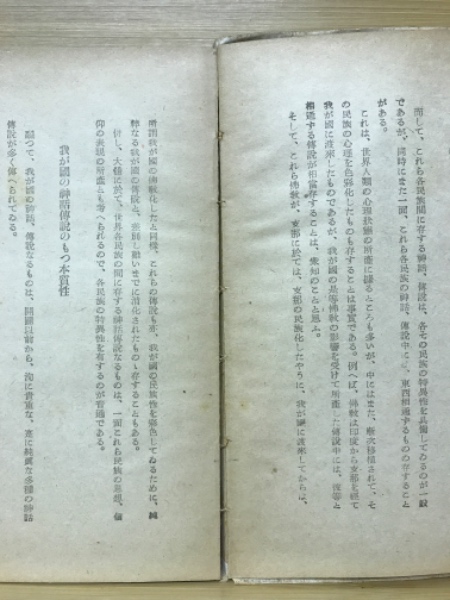 而して、これら各民族間に存する神話、傳説は、各その民族の特異性を具備してゐるのが一般
であるが、同時にまた一面、これら各民族の神話、傳説中には、東西相通ずるものの存すること
がある。
これは、世界人類の心理狀態の所產に據るところも多いが、中にはまた、漸次移植されて、そ
の民族の心理を色彩化したものも存することは事實である。例へば、佛敎は印度から支那を經て
我が國に渡來したものであるが、我が國の是等佛敎の影響を受けて所產した傳説中には、彼等と
相通ずる傳説が相當存することは、衆知のことと思ふ。
そして、これら佛敎が、支那に於ては、支那の民族化したやうに、我が國に渡來してからは、
所謂我が國の佛敎化したと同樣、これらの傳説も亦、我が國の民族性を彩色してゐるために、純
粹なる我が國の傳説と、差別し難いまでに消化されたものゝ存することもある。
併し、大體に於て、世界各民族の間に存する神話傳説なるものは、一面これら民族の思想、信
仰の表現の所產とも考へられるので、各民族の特異性を有するのが普通である。
我が國の神話傳説のもつ本質性
飜つて、我が國の神話、傳説なるものは、開國以前から、洵に貴重な、眞に純眞な多種の神話
傳説が多く傳へられてゐる。